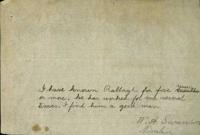 I have known Rallagh for five months
or more, he has worked for me several
times. I find him a good man.
W. H.